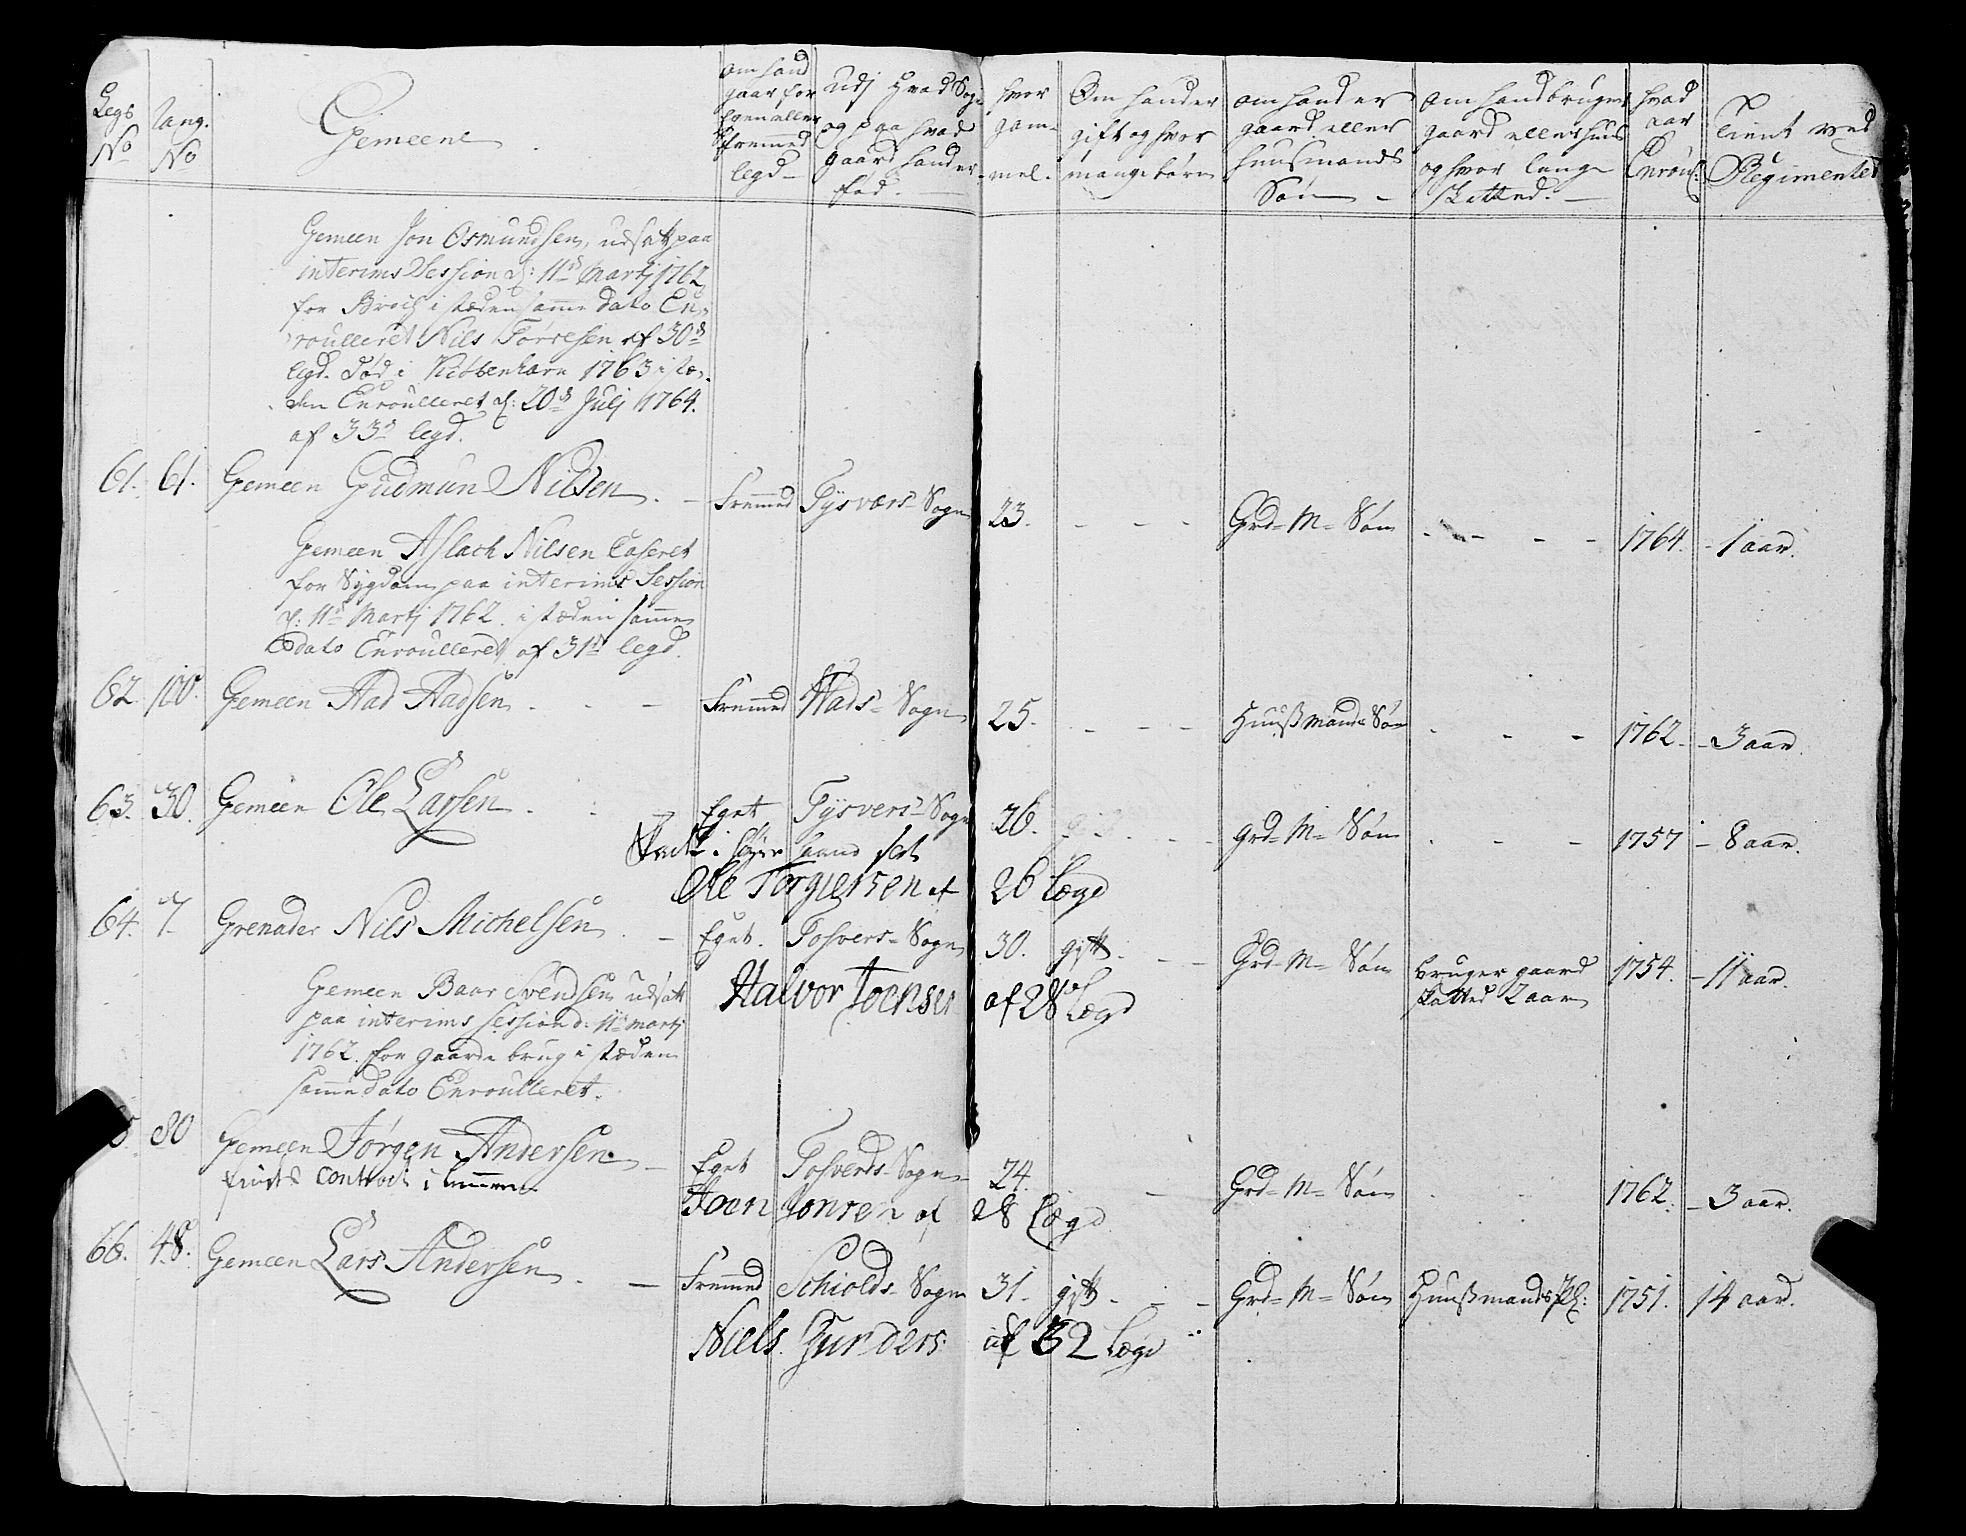 Legs No
Rang. No
Gemeene
om hand gaar for Egen eller fremmed legd
Udj hvad Sogn og paa hvad gaard hand er fød.
hvor gam-mel.
Om hand er gift og hvor mange børn
om hand er gaard eller huusmands Søn
om hand bruger gaard eller huus og hvor længe skatted.
hvad aar Enroul:
Tient ved Regimentet
Gemeen Jon Osmundsen, udsatt paa
interims Session d: 11te Martj 1762
for Brock i stæden samme dato En-
roulleret Nils Torresen af 30te
legd. død i Kiøbenhavn 1763 i stæ-
den Enroulleret d: 20de Julj 1764.
af 33te legd.
61. 61. Gemeen Gudmun Nilsen. - Fremmed Tysværs Sogn 23. - - - Grd-M-Søn - - - 1764. - 1 aar.
Gemeen Aslach Nilsen Caseret
for Sygdom paa interims Session
d: 11te Martj 1762. i stæden samme
dato Enroulleret af 31te legd.
62. 100. Gemeen Aad Aadsen. - - Fremmed Wads-Sogn 25. - - - Huusmands Søn - - - 1762. - 3 aar.
63. 30. Gemeen Ole Larsen. Eget Tysvers-Sogn 26. - - Grd-M-Søn - - - 1757 - 8 aar.
i
Ole Torgiersen af 26 Lægd
64. 7. Grenader Nils Michelsen. - Eget. Tosvers-Sogn 30. gift. - - Grd-M-Søn bruger gaard skatted 2 aar 1754. - 11 aar.
Halvor Joensen af 28 Lægd
Gemeen Baar Svendsen udsatt
paa interims session d: 11te martj
1762. for gaards brug i stæden
samme dato Enroulleret.
80 Gemeen Jørgen Andersen. - Eget Tosverds-Sogn 24. - Grd-M-Søn - - 1762. - 3 aar.
contract i
Joen Jonsen af 28 Lægd
66. 48. Gemeen Lars Andersen. - Fremmed Schiolds-Sogn 31. gift - - - Grd-M-Søn Huusmands Pl: 1751. 14 aar.
Niels Gunders: af 32 Lægd